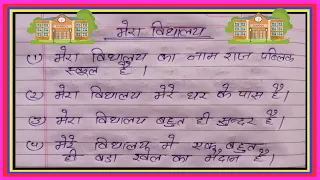 मेरा विद्यालय
(1) मेरा विद्यालय का नाम राज पब्लिक
स्कूल है ।
(2) मेरा विद्यालय मेरे घर के पास है ।
(3) मेरा विद्यालय बहुत ही सुन्दर है ।
(4) मेरे विद्यालय में एक बहुत
ही बडा खेल का मैदान है ।